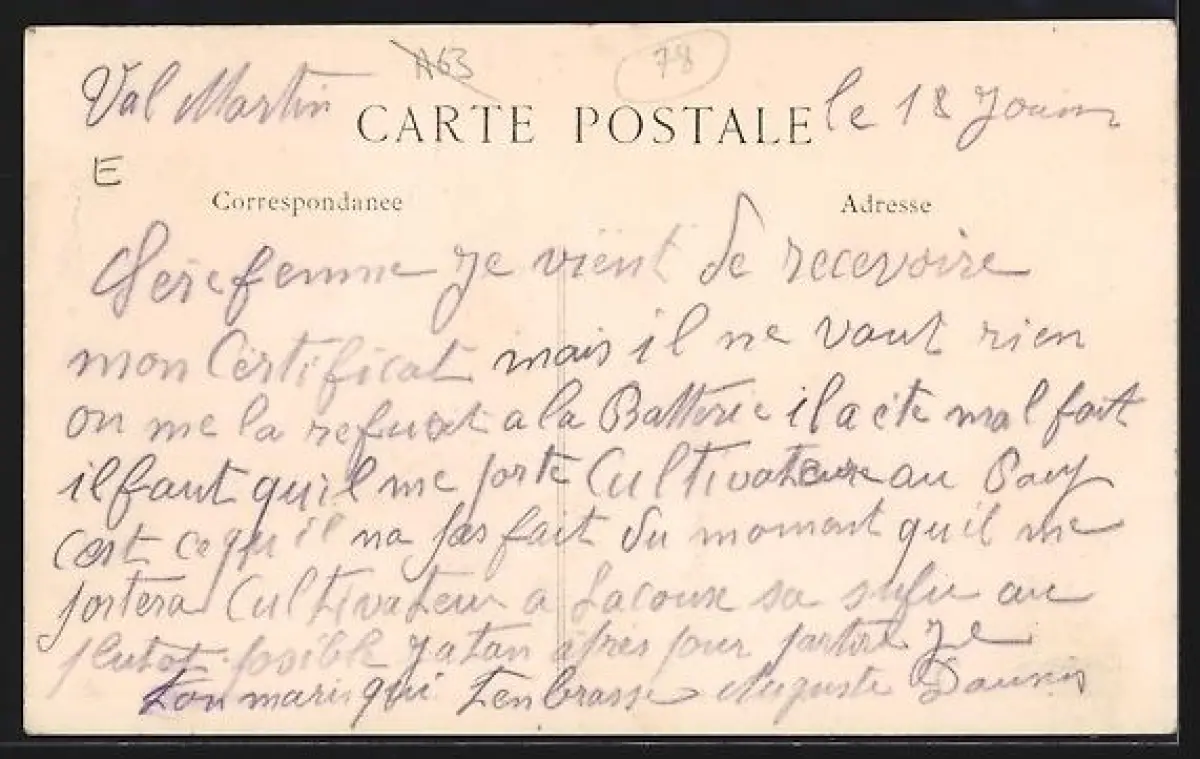 A63
78
Val Martin
CARTE POSTALE
le 18 Jouin
E
Correspondance
Adresse
Chere femme Je vient de recevoire
mon Certificat mais il ne vaut rien
on me la refuset a la Batterie il a ete mal fait
il faut qu'il me porte Cultivateur au Pay
cest ce qu'il na pas fait du moment qu'il me
portera Cultivateur a Lacoux sa sufie au
plutot posible Jatan apres pour partire Je
ton maris qui tenbrasse Auguste